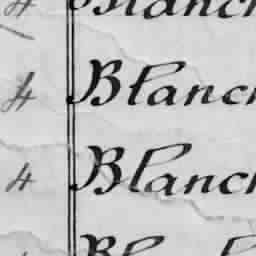 4 Blanch
4 Blanch
4 Blanch